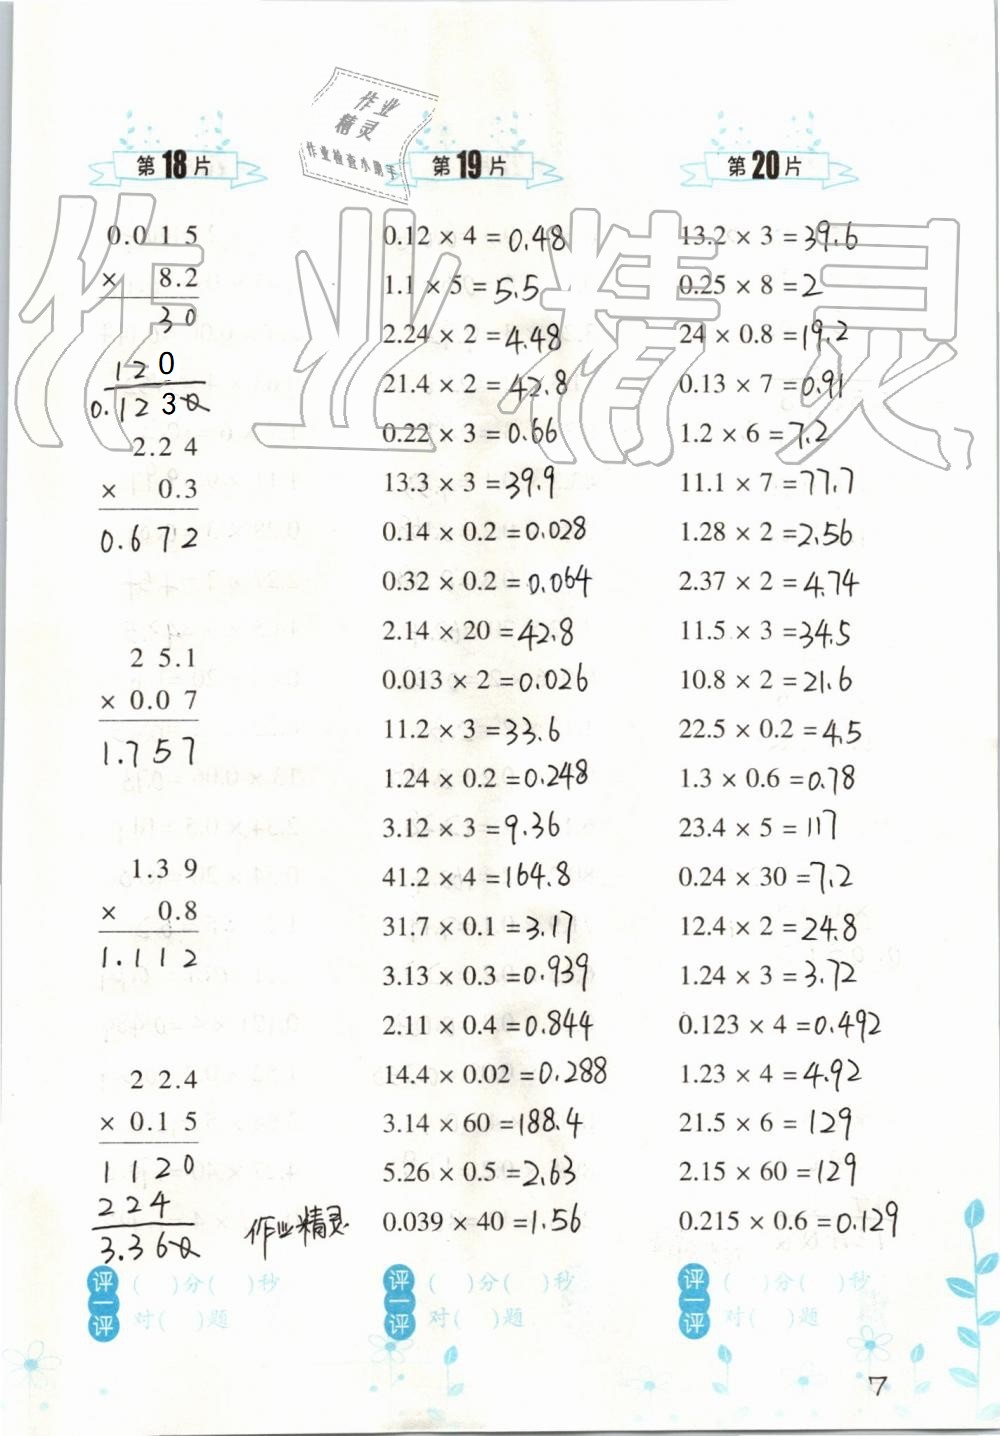 作业
精灵
作业检查小助手
第18片
0.015
× 8.2
30
120
0.1230
2.24
× 0.3
0.672
25.1
× 0.07
1.757
1.39
× 0.8
1.112
22.4
× 0.15
1120
224
3.360
作业精灵
评一评
( )分( )秒
对( )题
第19片
0.12 × 4 = 0.48
1.1 × 5 = 5.5
2.24 × 2 = 4.48
21.4 × 2 = 42.8
0.22 × 3 = 0.66
13.3 × 3 = 39.9
0.14 × 0.2 = 0.028
0.32 × 0.2 = 0.064
2.14 × 20 = 42.8
0.013 × 2 = 0.026
11.2 × 3 = 33.6
1.24 × 0.2 = 0.248
3.12 × 3 = 9.36
41.2 × 4 = 164.8
31.7 × 0.1 = 3.17
3.13 × 0.3 = 0.939
2.11 × 0.4 = 0.844
14.4 × 0.02 = 0.288
3.14 × 60 = 188.4
5.26 × 0.5 = 2.63
0.039 × 40 = 1.56
评一评
( )分( )秒
对( )题
第20片
13.2 × 3 = 39.6
0.25 × 8 = 2
24 × 0.8 = 19.2
0.13 × 7 = 0.91
1.2 × 6 = 7.2
11.1 × 7 = 77.7
1.28 × 2 = 2.56
2.37 × 2 = 4.74
11.5 × 3 = 34.5
10.8 × 2 = 21.6
22.5 × 0.2 = 4.5
1.3 × 0.6 = 0.78
23.4 × 5 = 117
0.24 × 30 = 7.2
12.4 × 2 = 24.8
1.24 × 3 = 3.72
0.123 × 4 = 0.492
1.23 × 4 = 4.92
21.5 × 6 = 129
2.15 × 60 = 129
0.215 × 0.6 = 0.129
评一评
( )分( )秒
对( )题
作业精灵
7